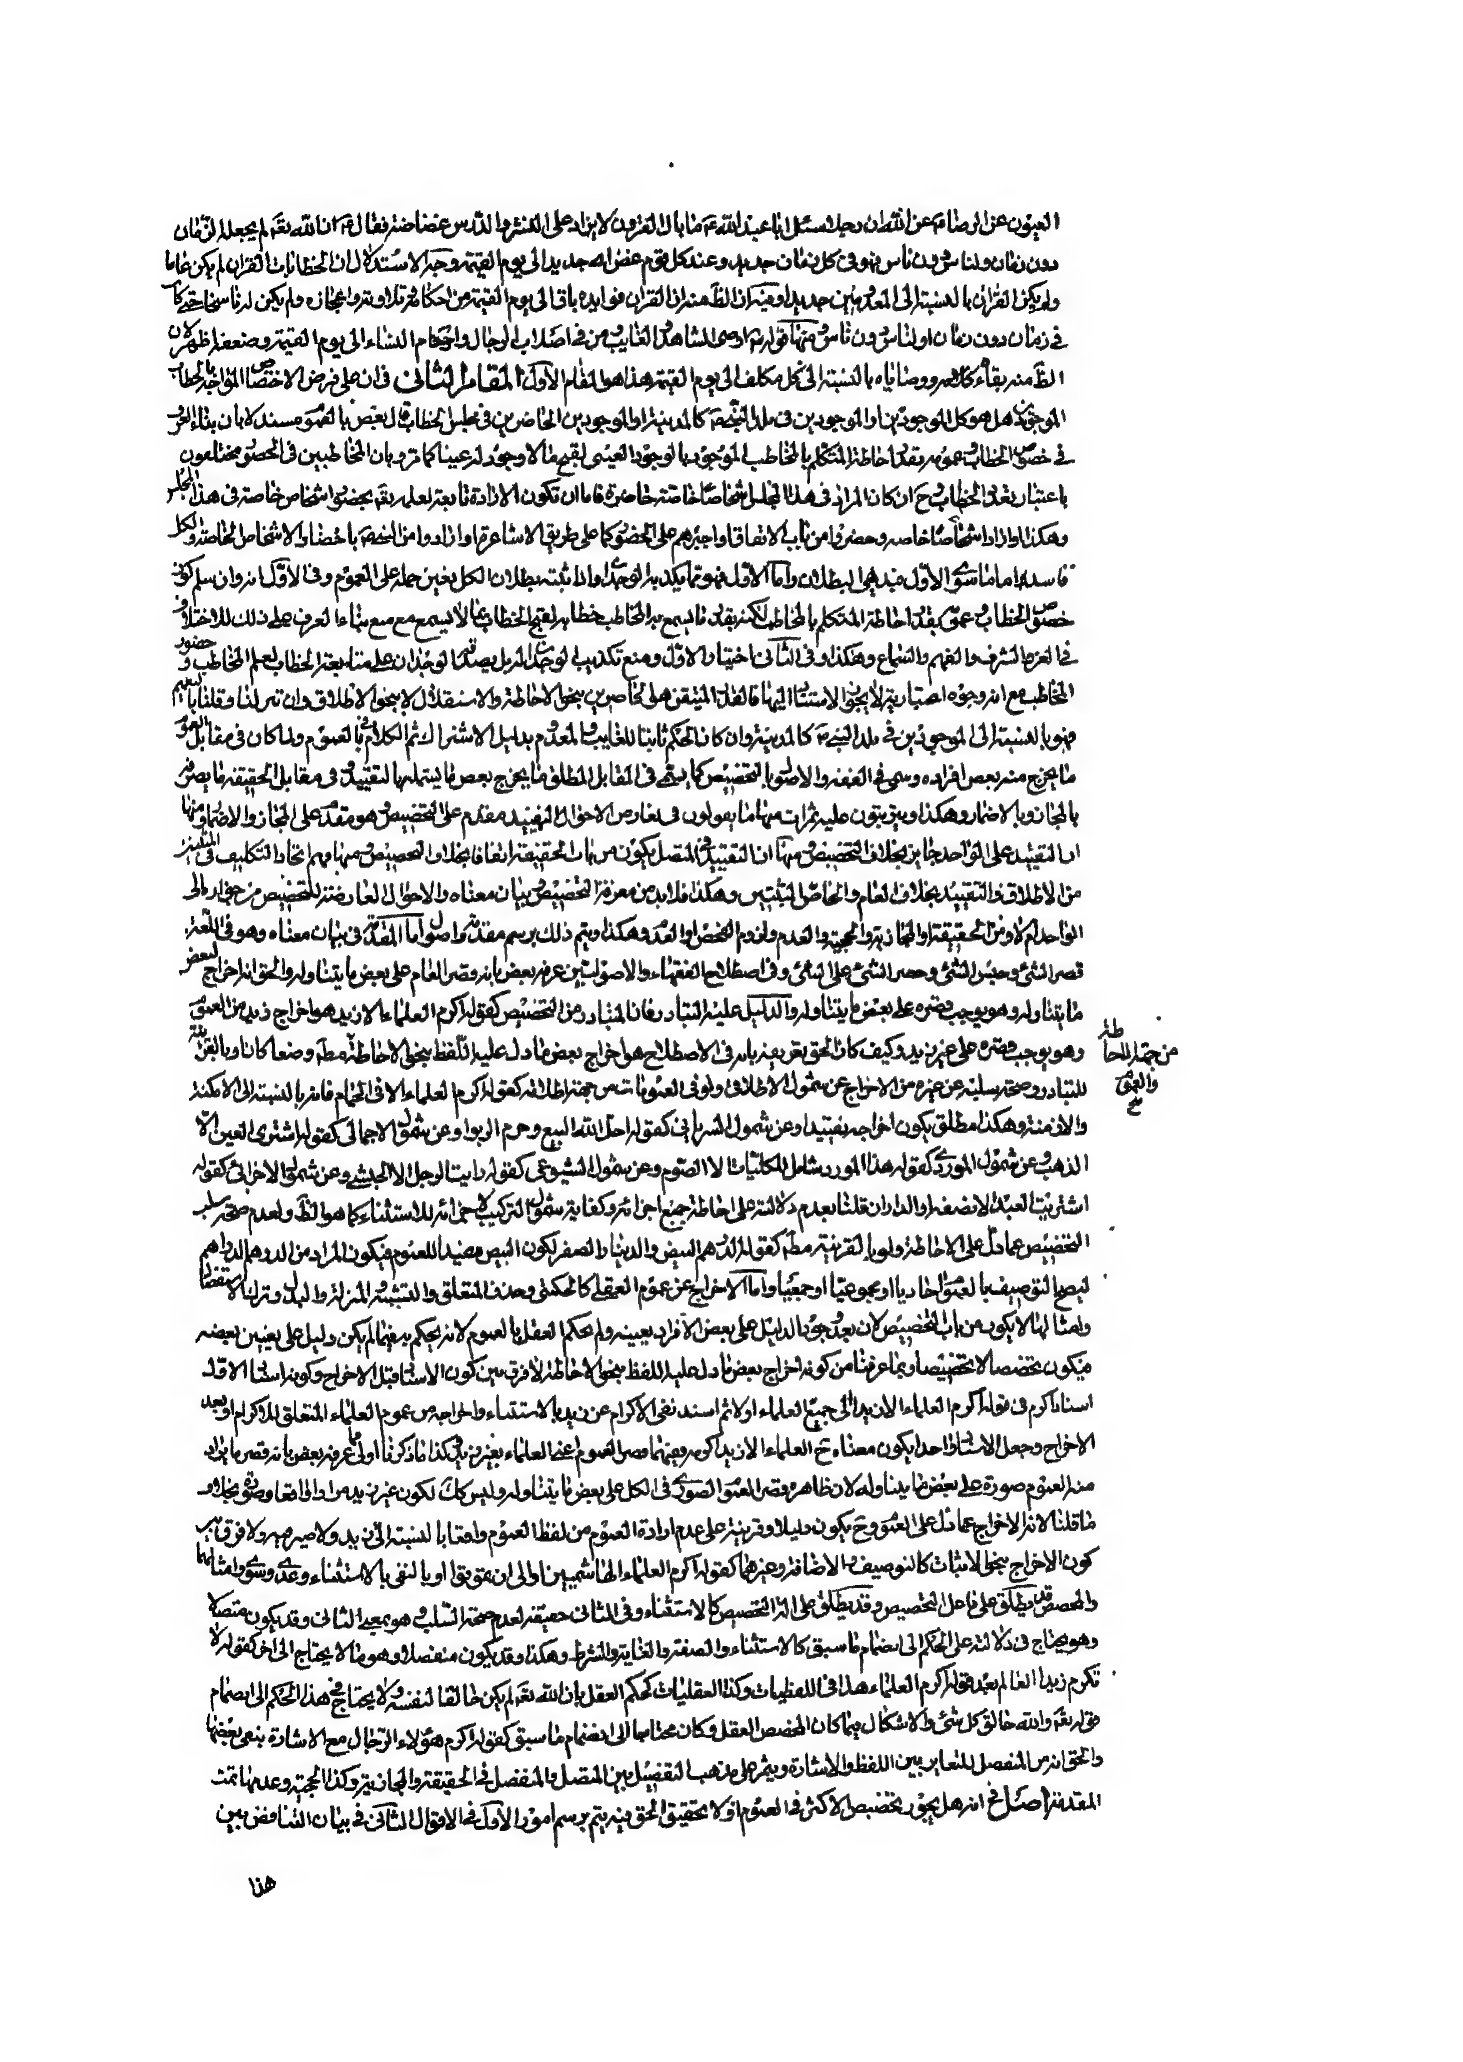 العيون عن الرضا ع عن ابيه ان رجلا سئل ابا عبد الله ع ما بال القرءن لا يزاد على النشر والدرس غضاضة فقال ع ان الله تعه لم يجعله لزمان
دون زمان ولناس دون ناس فهو في كل زمان جديد وعند كل قوم غض الى يوم القيمة وجه الاستدلال ان الخطابات القران لم يكن عاما
ولم يكن القران بالنسبة الى المعدومين جديدا وفيه ان الظ منه ان القران فوايده باق الى يوم القيمة من احكامه وتلاوته واعجازه ولم يكن له ناسخا حتى كان
في زمان دون زمان او لناس دون ناس ومنها قوله ع اوصى الشاهد والغايب ومن في اصلاب الرجال وارحام النساء الى يوم القيمة وضعفه اظهر لان
الظ منه بقاء كلامه ووصاياه بالنسبة الى كل مكلف الى يوم القيمة هذا هو المقام الاول المقام الثاني في ان على فرض الاختصاص المواجه بالخطاب
الموجودين هل هو كل الموجودين او الموجودين في بلد النبي ص كالمدينة او الموجودين الحاضرين في مجلس الخطاب قال بعض بالعموم مستدلا بان بناء العرف
في خصوص الخطاب وعمومه بقدر احاطة المتكلم بالمخاطب الموجود بالوجود العيني لقبح ما لا وجود له عينا كما مر وبان المخاطبين في الحضور مختلفون
باعتبار تعدد الخطاب وح ان كان المراد في هذا المجلس اشخاصا خاصة حاضرة فاما ان تكون الارادة تابعة لعلمه تعه بحضور اشخاص خاصة في هذا المجلس
وهكذا او اراد اشخاصا خاصه وحضروا من باب الاتفاق او اجبرهم على الحضور كما على طريق الاشاعرة او اراد وامر النبي ص باحضار الاشخاص الخاصة والكل
فاسدة اما ما سوى الاول فبديهي البطلان واما الاول فهو مما يكذبه الوجدان واذا ثبت بطلان الكل تعين حمله على العموم وفي الاول انه وان سلم كون
خصوص الخطاب وعمومه بقدر احاطة المتكلم بالمخاطب لكنه بقدر ما يسمع به المخاطب خطابه لقبح الخطاب بما لا يسمع مع منع بناء العرف على ذلك للاختلاف
في العز والشرف والفهم والسماع وهكذا وفي الثاني اختيار الاول ومنع تكذيب الوجدان له بل يصدقه الوجدان على متابعة الخطاب لعلم المخاطب و حضور
المخاطب مع انه وجوه اعتبارية لا يجوز الاستناد اليها فالقدر المتيقن هو الحاضرين بنحو الاحاطة والاستقلال لا بنحو الاطلاق وان تنزلنا وقلنا بالتعميم
فهو بالنسبة الى الموجودين في بلد النبي ص كالمدينة وان كان الحكم ثابتا للغايب والمعدوم بدليل الاشتراك ثم الكلام في العموم ولما كان في مقابل العموم
ما يخرج منه بعض افراده وسمى في الفقه والاصول بالتخصيص كما يسمى في المقابل المطلق ما يخرج بعض ما يشمله بالتقييد وفي مقابل الحقيقة ما يصرفه
بالمجاز وبالاضمار وهكذا ويترتبون عليه ثمرات منها ما يقولون في تعارض الاحوال التقييد مقدم على التخصيص وهو مقدم على المجاز والاضمار ومنها
ان التقييد على الواحد جاىز بخلاف التخصيص ومنها ان التقييد في المتصل يكون من باب الحقيقة اتفاقا بخلاف التخصيص ومنها فهم اتحاد التكليف في المتكثير
من الاطلاق والتقييد بخلاف العام والخاص المثبتين وهكذا فلا بد من معرفة التخصيص وبيان معناه والاحوال العارضة للتخصيص من جوازه الى
الواحد ام لا ومن الحقيقة او المجازية والحجية والعدم ولزوم الفحص او العدم وهكذا ويتم ذلك برسم مقدمة واصول اما المقدمة في بيان معناه وهو في اللغة
قصر الشئ وحبس الشئ وحصر الشئ على الشئ وفي اصطلاح الفقهاء والاصوليين عرفه بعض بانه قصر العام على بعض ما يتناوله والحق انه اخراج لبعض
ما يتناوله وهو يوجب قصره على بعض ما يتناوله والدليل عليه التبادر فان المتبادر من التخصيص كقوله اكرم العلماء الا زيد هو اخراج زيد من العموم
وهو يوجب قصره على غير زيد وكيف كان الحق تعريفه بانه في الاصطلاح هو اخراج بعض ما دل عليه اللفظ بنحو الاحاطة مطه وضعا كان او بالقرينة
من جهة الاحاطة
والعموم
صح
للتبادر وصحة سلبه عن غيره من الاخراج عن شمول الاطلاقى ولو في العمومات من جهة اطلاقه كقوله اكرم العلماء الا في الحمام فانه بالنسبة الى الامكنة
والازمنة وهكذا مطلق يكون اخراجه تقييدا وعن شمول السرياني كقوله احل الله البيع وحرم الربوا وعن شمول الاجمالي كقوله اشترى العين الا
الذهب وعن شمول الموردى كقوله هذا المورد شامل للكليات الا الصوم وعن شمول الشيوعى كقوله رايت الرجل الا الحبشي وعن شمول الاجزائى كقوله
اشتريت العبد الا نصفه او الدار ان قلنا بعدم دلالته على احاطة جميع اجزائه وكفاية شمول التركيب لاجزائه للاستثناء كما هو الظ ولعدم صحة سلب
التخصيص عما دل على الاحاطة ولو بالقرينة مطه كقوله الدرهم البيض والدينار الصفر لكون البيض مفيدا للعموم فيكون المراد من الدرهم الدراهم
ليصح التوصيف بالعموم احاديا او مجموعيا او جمعيا واما الاخراج عن عموم العقلي كالحكمتى وحذف المتعلق والتشبيه والمنزلة والبدل وترك الاستفصال
وامثالها لا يكون من باب التخصيص لان بعد وجود الدليل على بعض الافراد بعينه ولم يحكم العقل بالعموم لانه يحكم به فيما لم يكن دليل على تعيين بعضه
فيكون تخصصا لا تخصيصا وبما عرفنا من كونه اخراج بعض ما دل عليه اللفظ بنحو الاحاطة لا فرق بين كون الاسناد قبل الاخراج وكونه اسناد الاول
اسناد اكرم في قوله اكرم العلماء الا زيدا الى جميع العلماء اولا ثم اسند نفي الاكرام عن زيد بالاستثناء واخراجه من عموم العلماء المتعلق للاكرام او بعد
الاخراج وجعل الاسناد واحدا يكون معناه ح العلماء الا زيدا اكرمه وفيهما قصر العموم اعنى العلماء بغير زيد وكذا ما ذكرنا اولى مما عرفه بعض بانه قصر ما يراد
منه العموم صورة على بعض ما يتناوله لان ظاهره قصر العموم الصورى في الكل على بعض ما يتناوله وليس كك لكون غير زيد مرادا واقعا وصورة بخلاف
ما قلنا لانه الاخراج عما دل على العموم وح يكون دليلا وقرينة على عدم ارادة العموم من لفظ العموم واقعا بالنسبة الى زيد ولا ضير فيه ولا فرق بين
كون الاخراج بنحو الاثبات كالتوصيف والاضافة وغيرهما كقوله اكرم العلماء الهاشميين او الى ان يفوقوا او بالنفى بالاستثناء وعدى وسوى وامثالهما
والمخصص قد يطلق على فاعل التخصيص وقد يطلق على الة التخصيص كالاستثناء وفي الثانى حقيقة لعدم صحة السلب وهو بمعنى الثانى وقد يكون متصلا
وهو يحتاج في دلالته على الحكم الى انضمام ما سبق كالاستثناء والصفة والغاية والشرط وهكذا وقد يكون منفصلا وهو ما لا يحتاج الى اخر كقوله لا
تكرم زيدا العالم بعد قوله اكرم العلماء هذا في اللفظيات وكذا العقليات كحكم العقل بان الله تعه لم يكن خالقا لنفسه ولا يحتاج في هذا الحكم الى انضمام
قوله تعه والله خالق كل شئ والاشكال فيما كان المخصص العقل وكان محتاجا الى انضمام ما سبق كقوله اكرم هؤلاء الرجال مع الاشارة بنفى بعضها
والحق انه من المنفصل للتغاير بين اللفظ والاشارة ويثمر على مذهب التفصيل بين المتصل والمنفصل في الحقيقة والمجازية وكذا الحجية وعدمها تمت
المقدمة اصل في انه هل يجوز تخصيص الاكثر في العموم او لا تحقيق الحق فيه يتم برسم امور الاول في الاقوال الثاني في بيان التناقض بين
هذا